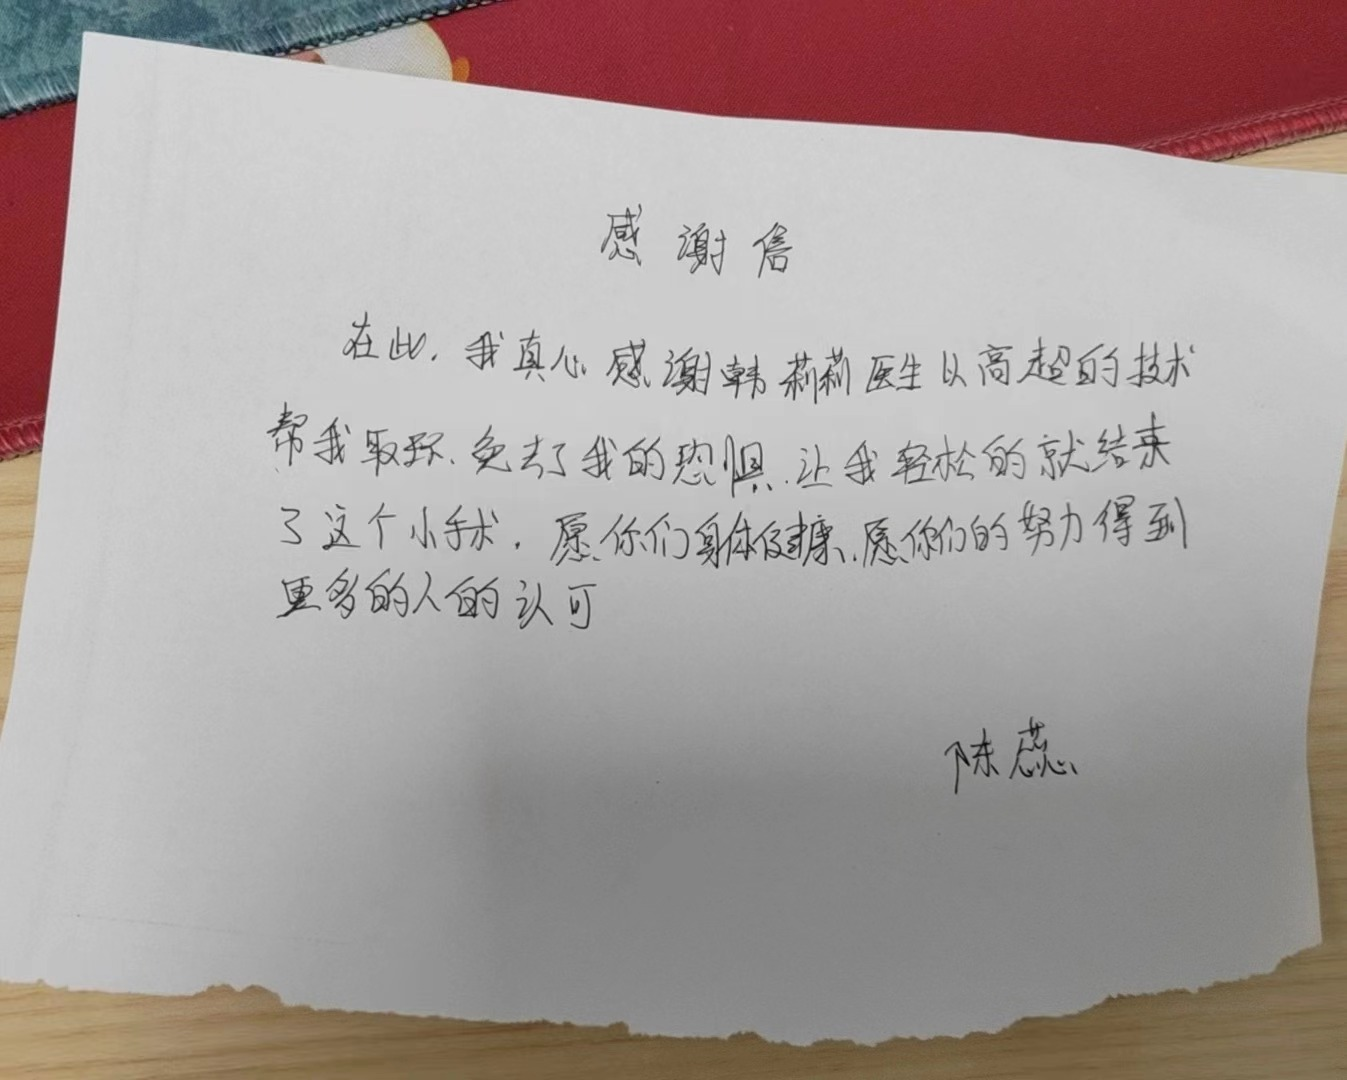 感谢信
在此，我真心感谢韩莉莉医生以高超的技术
帮我取环、免去了我的恐惧、让我轻松的就结束
了这个小手术，愿你们身体健康、愿你们的努力得到
更多的人的认可
陈蕊